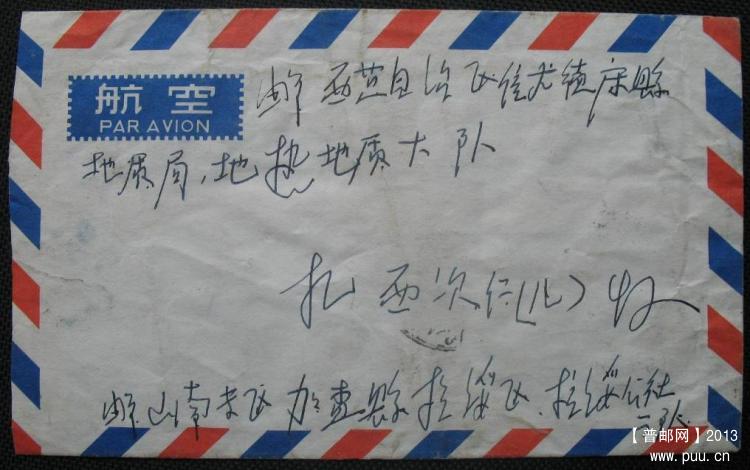 航空
PAR AVION
邮 西芷自治区 德庆县
地质局,地热地质大队
扎西次仁(儿)收
邮山南专区加查县拉绥区.拉绥公社
二队.
【普邮网】2013
www.puu.cn